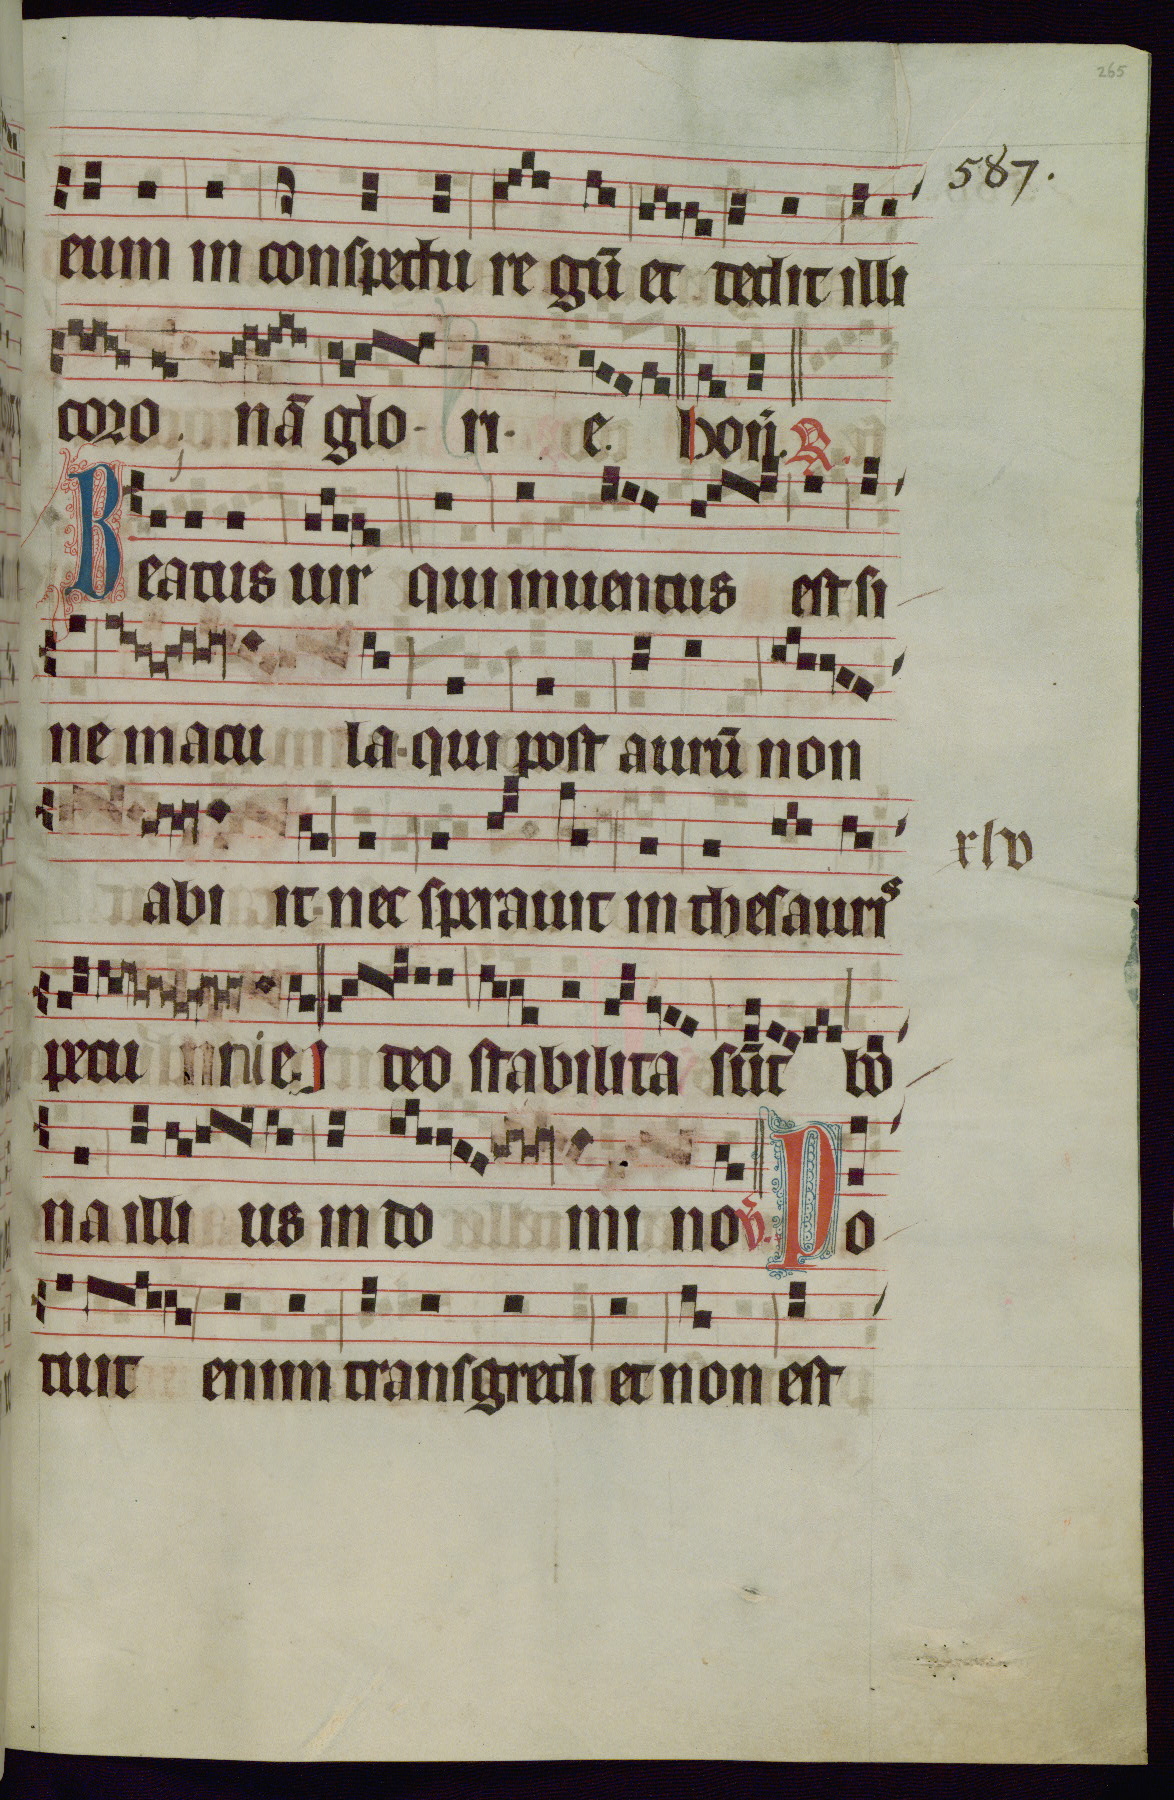 265
587.
eum in conspectu re gū et dedit illi
coro nā glo- ri- e. hon̄. R.
Beatus uir qui inuentus est si
ne macu la. qui post aurū non
abi it. nec sperauit in thesauris
xlv
pecu nnie. I deo stabilita sūt bo
na illi us in do mi no V. Po
tuit enim transgredi et non est